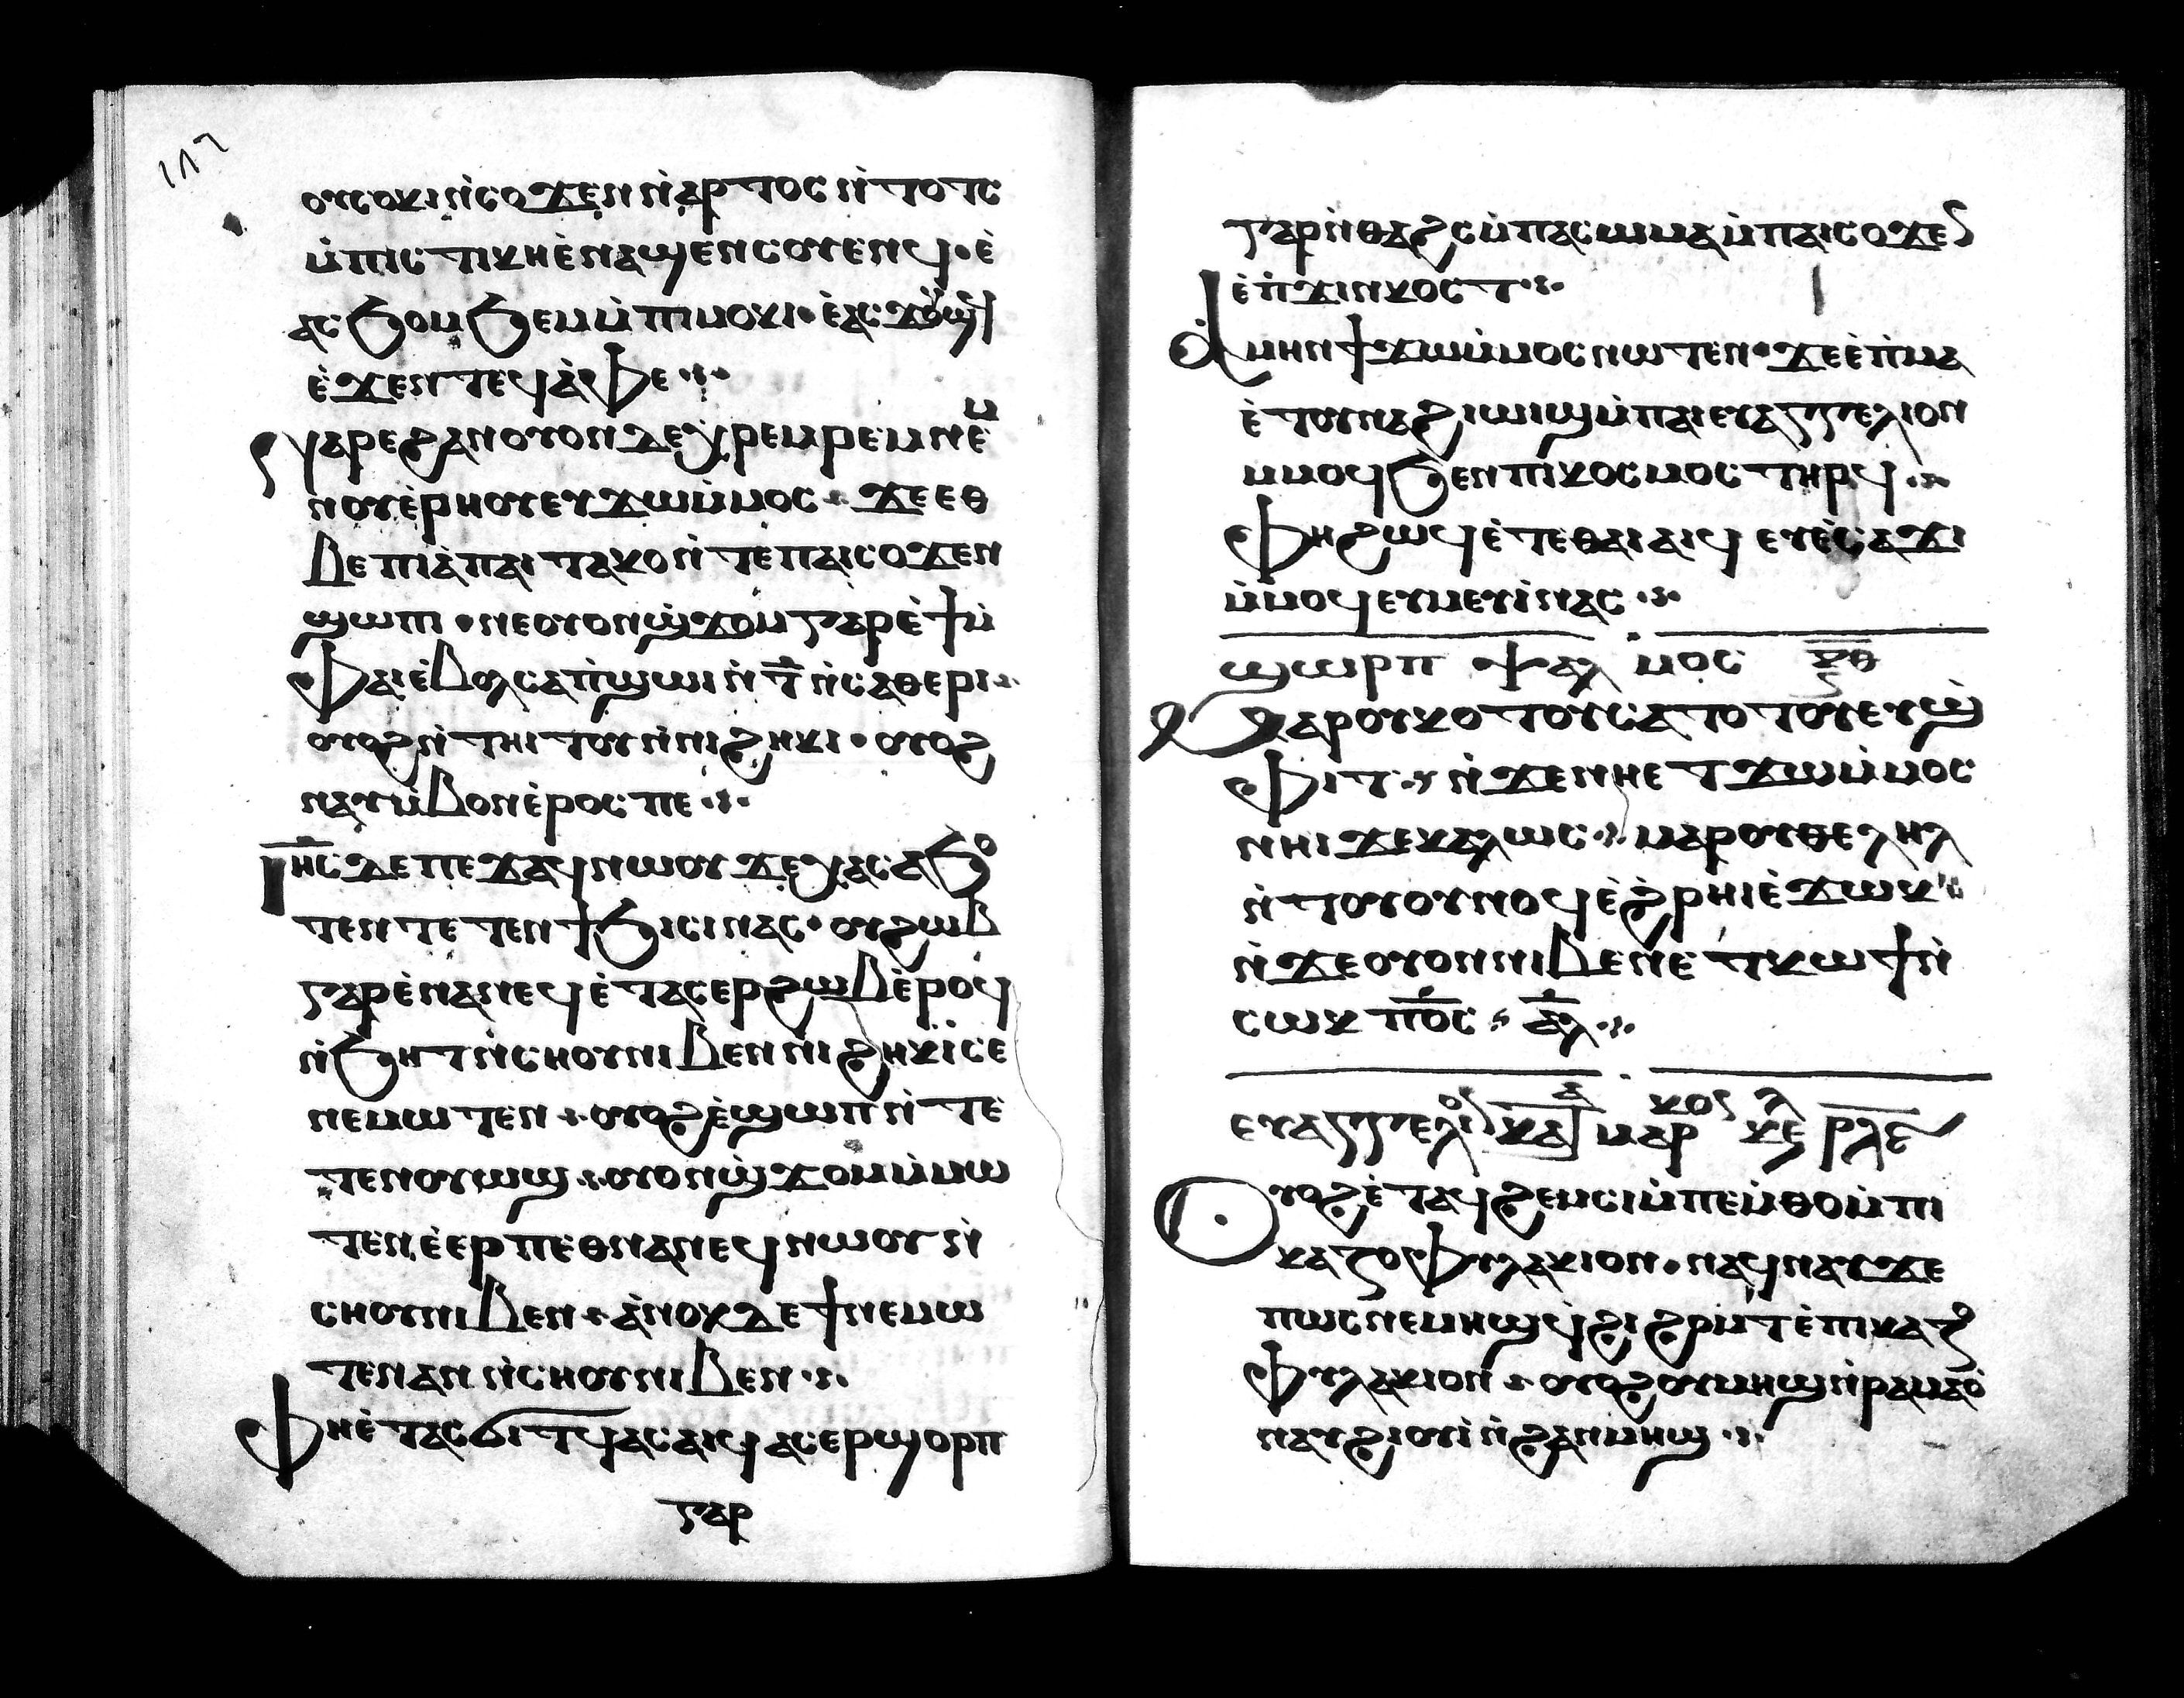 ⲟⲩⲥⲟⲕⲓ ⲛ̀ⲥⲟϫⲉⲛ ⲛ̀ⲛⲁⲣⲧⲟⲥ ⲛ̀ⲧⲟⲧⲥ
ⲙ̀ⲡⲓⲥⲧⲓⲕⲏ ⲉ̀ⲛⲁϣⲉⲛⲥⲟⲩⲉⲛϥ · ⲉ̀
ⲁⲥϧⲟⲙϧⲉⲙ ⲙ̀ⲡⲓⲙⲟⲕⲓ · ⲉ̀ⲁⲥϫⲟϣϥ
ⲉ̀ϫⲉⲛ ⲧⲉϥⲁ̀ⲫⲉ ·:·
ⲛⲁⲣⲉ ϩⲁⲛⲟⲩⲟⲛ ⲇⲉ ⲭⲣⲉⲙⲣⲉⲙ ⲛⲉⲙ
ⲛⲟⲩⲉ̀ⲣⲏⲟⲩ ⲉⲩϫⲱ ⲙ̀ⲙⲟⲥ · ϫⲉ ⲉⲑ
ⲃⲉ ⲡⲓ ⲁ̀ ⲡⲁⲓⲧⲁⲕⲟ ⲛ̀ⲧⲉ ⲡⲁⲓⲥⲟϫⲉⲛ
ϣⲱⲡⲓ · ⲛⲉ ⲟⲩⲟⲛ ϣ̀ϫⲟⲙ ⲅⲁⲣ ⲉ̀ϯ ⲙ̀
ⲫⲁⲓ ⲉ̀ⲃⲟⲗ ⲥⲁⲡ̀ϣⲱⲓ ⲛ̀ ⲧ̅ ⲛ̀ⲥⲁⲑⲉⲣⲓ ·:·
ⲟⲩⲟϩ ⲛ̀ⲧⲏⲓⲧⲟⲩ ⲛ̀ⲛⲓϩⲏⲕⲓ · ⲟⲩⲟϩ
ⲛⲁⲩⲙ̀ⲃⲟⲛ ⲉ̀ⲣⲟⲥ ⲡⲉ ·:·
ⲓⲏ̅ⲥ ⲇⲉ ⲡⲉϫⲁϥ ⲛⲱⲟⲩ ϫⲉ ⲭⲁⲥ ⲁϧⲟ
ⲧⲉⲛ ⲧⲉⲧⲉⲛϯϧⲓⲥⲓ ⲛⲁⲥ · ⲟⲩϩⲱⲃ
ⲅⲁⲣ ⲉ̀ⲛⲁⲛⲉϥ ⲉ̀ⲧⲁⲥⲉⲣϩⲱⲃ ⲉ̀ⲣⲟϥ
ⲛ̀ϧⲏⲧ ⲛ̀ⲥⲏⲟⲩ ⲛⲓⲃⲉⲛ ⲛⲓϩⲏⲕⲓ ⲥⲉ
ⲛⲉⲙⲱⲧⲉⲛ · ⲟⲩⲟϩ ⲉ̀ϣⲱⲡ ⲛ̀ⲧⲉ
ⲧⲉⲛⲟⲩⲱϣ · ⲟⲩⲟⲛ ϣ̀ϫⲟⲙ ⲙ̀ⲙⲱ
ⲧⲉⲛ ⲉ̀ⲉⲣ ⲡⲉⲑⲛⲁⲛⲉϥ ⲛⲱⲟⲩ ⲛ̀
ⲥⲏⲟⲩ ⲛⲓⲃⲉⲛ · ⲁ̀ⲛⲟⲕ ⲇⲉ ϯⲛⲉⲙⲱ
ⲧⲉⲛ ⲁⲛ ⲛ̀ⲥⲏⲟⲩ ⲛⲓⲃⲉⲛ ·:·
ⲫⲏ ⲉ̀ⲧⲁⲥϭⲓⲧϥ ⲁⲥⲁⲓϥ ⲁⲥⲉⲣϣⲟⲣⲡ
ⲅⲁⲣ
ⲅⲁⲣ ⲛ̀ⲑⲁϩⲥ ⲙ̀ⲡⲁⲥⲱⲙⲁ ⲙ̀ⲡⲁⲓⲥⲟϫⲉ
ⲉ̀ⲡ̀ϫⲓⲛⲕⲟⲥⲧ ·:·
ⲁ̀ⲙⲏⲛ ϯϫⲱ ⲙ̀ⲙⲟⲥ ⲛⲱⲧⲉⲛ · ϫⲉ ⲉ̀ⲡ̀ⲙⲁ
ⲉ̀ⲧⲟⲩⲛⲁϩⲓⲱⲓϣ ⲙ̀ⲡⲁⲓⲉⲩⲁⲅⲅⲉⲗⲓⲟⲛ
ⲙⲙⲟϥ ϧⲉⲛ ⲡⲓⲕⲟⲥⲙⲟⲥ ⲧⲏⲣϥ ·:·
ⲫⲏ ϩⲱϥ ⲉ̀ⲧⲉ ⲑⲁⲓ ⲁⲓϥ ⲉⲩⲉ̀ⲥⲁϫⲓ
ⲙ̀ⲙⲟϥ ⲉⲩⲙⲉⲩⲓ̀ ⲛⲁⲥ ·:·
ϣⲱⲣⲡ ⲯⲁⲗⲙⲟⲥ ⲝ̅ⲑ̅
ⲙⲁⲣⲟⲩⲕⲟⲧⲟⲩ ⲥⲁⲧⲟⲧⲟⲩ ⲉⲩϣ̀
ⲫⲓⲧ · ⲛ̀ϫⲉ ⲛⲏ ⲉⲧϫⲱ ⲙ̀ⲙⲟⲥ
ⲛⲏⲓ ϫⲉ ⲕⲁⲗⲱⲥ · ⲙⲁⲣⲟⲩⲑⲉⲗⲏⲗ
ⲛ̀ⲧⲟⲩⲟⲩⲛⲟϥ ⲉ̀ϩ̀ⲣⲏⲓ ⲉ̀ϫⲱⲕ
ⲛ̀ϫⲉ ⲟⲩⲟⲛ ⲛⲓⲃⲉⲛ ⲉⲧⲕⲱϯ ⲛ̀
ⲥⲱⲕ ⲡ̅ⲟ̅ⲥ̅ · ⲁ̅ⲗ̅ ·:·
ⲉⲩⲁⲅⲅⲉⲗⲓⲟ ⲕⲁⲧⲁ ⲙⲁⲣⲕⲟⲥ ⲕⲉ ⲣⲗⲉ
ⲟⲩⲟϩ ⲉ̀ⲧⲁϥϩⲉⲙⲥⲓ ⲙ̀ⲡⲉⲙ̀ⲑⲟ ⲙ̀ⲡⲓ
ⲕⲁⲍⲟⲫⲩⲗⲁⲕⲓⲟⲛ · ⲛⲁϥⲛⲁⲩ ϫⲉ
ⲡⲱⲥ ⲛⲉ ⲙⲏϣ ϥ̀ϩⲓ ϩⲣⲙ̀ⲧ ⲉ̀ⲡⲓⲕⲁⲍⲟ
ⲫⲩⲗⲁⲕⲓⲟⲛ · ⲟⲩⲟϩ ⲟⲩⲙⲏϣ ⲛ̀ⲣⲁⲙⲁⲟ̀
ⲛⲁⲩϩⲓⲟⲩⲓ̀ ⲛ̀ϩⲁⲛⲙⲏϣ ·:·